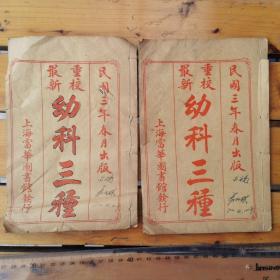 民國三年春月出版
重校
最新
幼科三種
上海富華圖書館發行
民國三年春月出版
重校
最新
幼科三種
上海富華圖書館發行